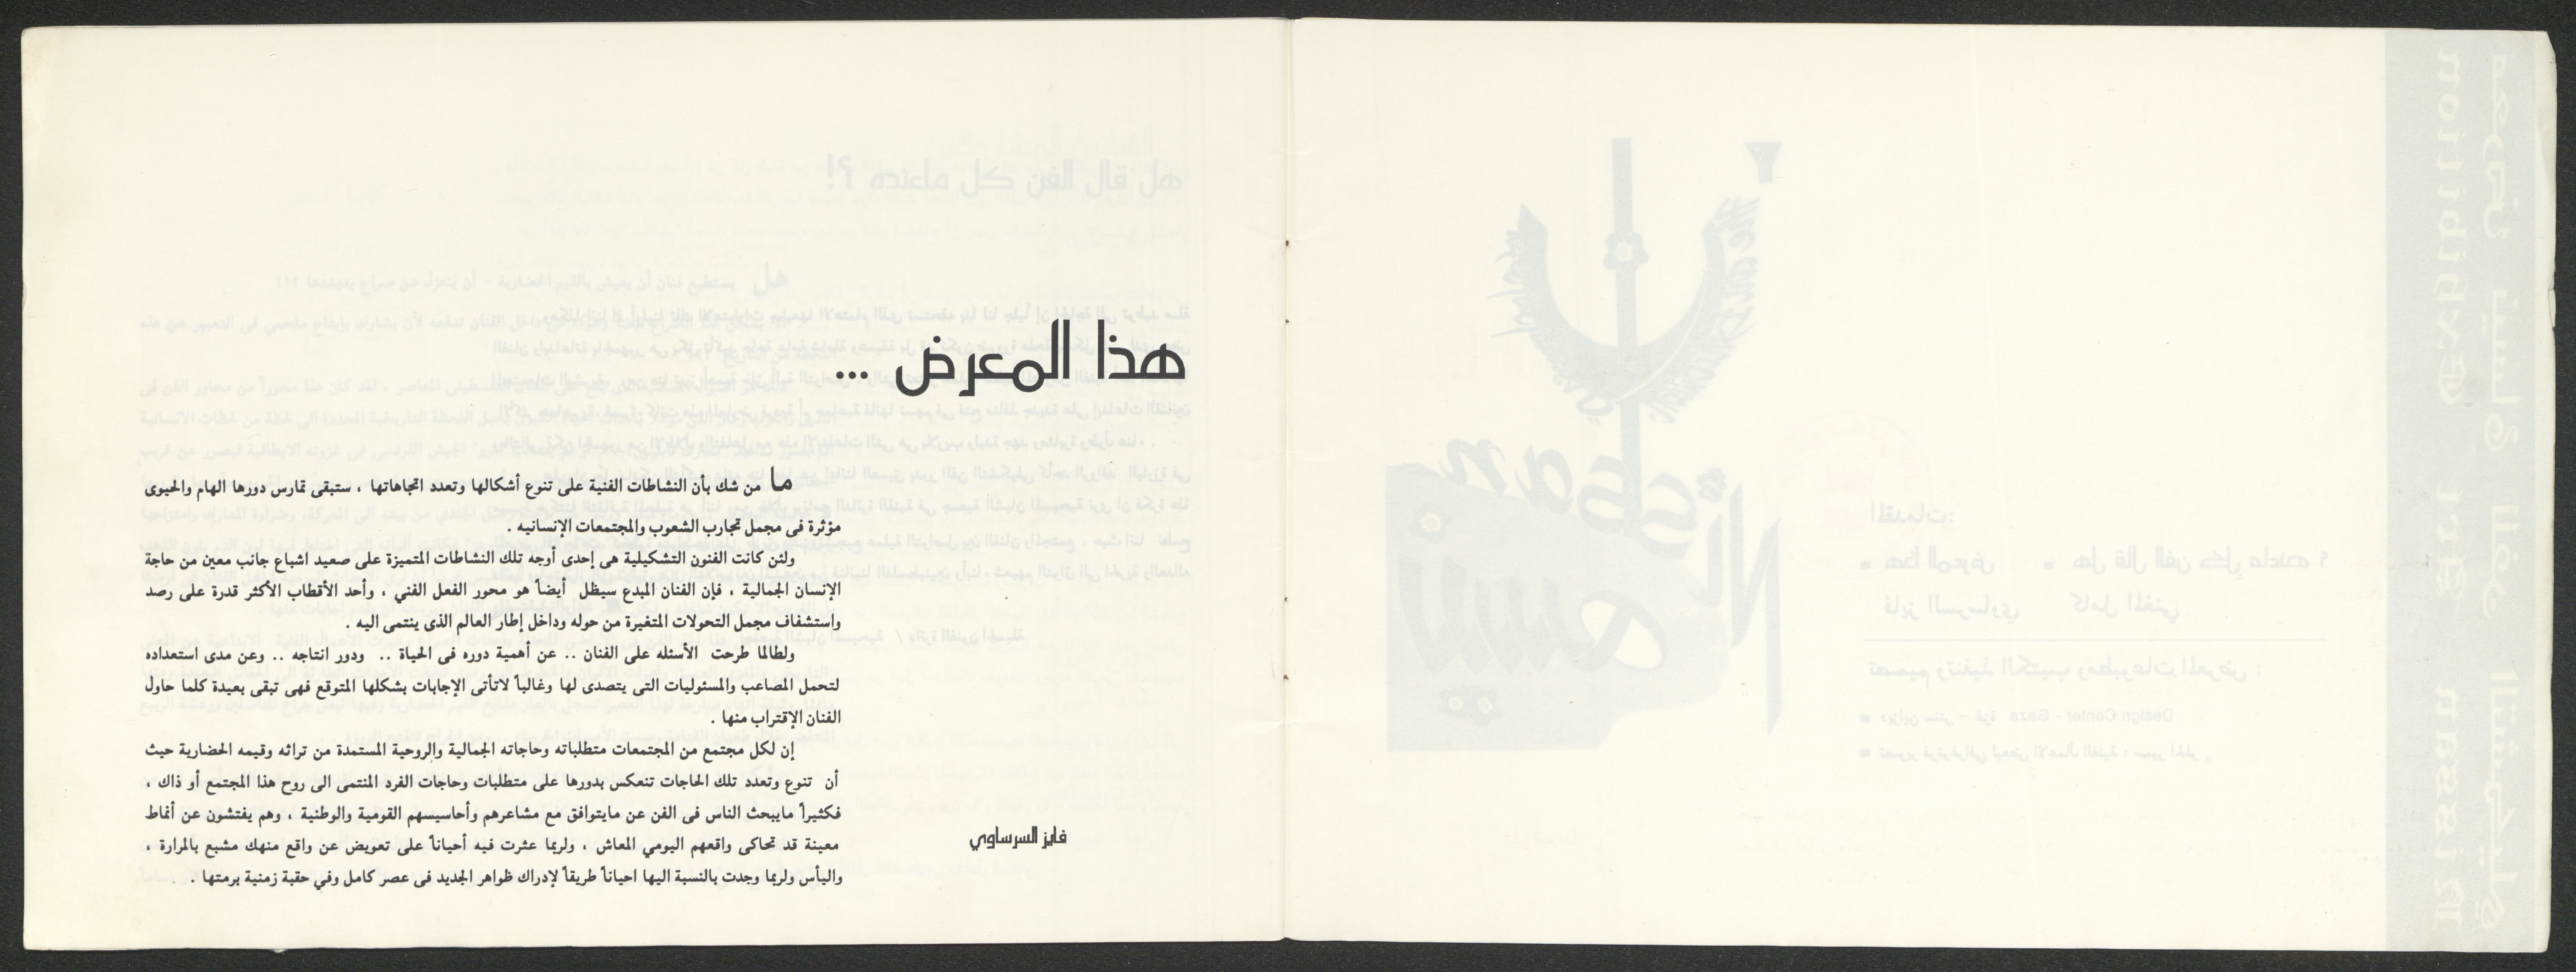 هذا المعرض ...
ما من شك بأن النشاطات الفنية على تنوع أشكالها وتعدد اتجاهاتها ، ستبقى تمارس دورها الهام والحيوى
مؤثرة فى مجمل تجارب الشعوب والمجتمعات الإنسانيه .
ولئن كانت الفنون التشكيلية هى إحدى أوجه تلك النشاطات المتميزة على صعيد اشباع جانب معين من حاجة
الإنسان الجمالية ، فإن الفنان المبدع سيظل أيضاً هو محور الفعل الفني ، وأحد الأقطاب الأكثر قدرة على رصد
واستشفاف مجمل التحولات المتغيرة من حوله وداخل إطار العالم الذى ينتمى اليه .
ولطالما طرحت الأسئله على الفنان .. عن أهمية دوره فى الحياة .. ودور انتاجه .. وعن مدى استعداده
لتحمل المصاعب والمسئوليات التى يتصدى لها وغالباً لاتأتى الإجابات بشكلها المتوقع فهى تبقى بعيدة كلما حاول
الفنان الإقتراب منها .
إن لكل مجتمع من المجتمعات متطلباته وحاجاته الجمالية والروحية المستمدة من تراثه وقيمه الحضارية حيث
أن تنوع وتعدد تلك الحاجات تنعكس بدورها على متطلبات وحاجات الفرد المنتمى الى روح هذا المجتمع أو ذاك ،
فكثيراً مايبحث الناس فى الفن عن مايتوافق مع مشاعرهم وأحاسيسهم القومية والوطنية ، وهم يفتشون عن أنماط
معينة قد تحاكى واقعهم اليومي المعاش ، ولربما عثرت فيه أحياناً على تعويض عن واقع منهك مشبع بالمرارة ،
واليأس ولربما وجدت بالنسبة اليها احياناً طريقاً لإدراك ظواهر الجديد فى عصر كامل وفي حقبة زمنية برمتها .
فايز السرساوي